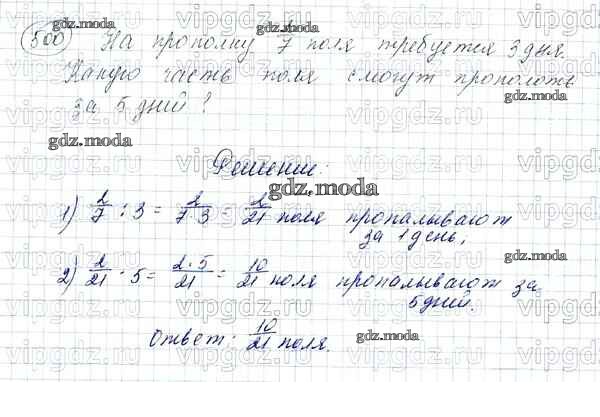 500 На прополку 2/7 поля требуется 3 дня.
Какую часть поля смогут прополоть
за 5 дней?
Решение:
1) 2/7 : 3 = 2/7·3 = 2/21 поля пропалывают
за 1 день,
2) 2/21 · 5 = 2·5/21 = 10/21 поля пропалывают за
5 дней.
Ответ: 10/21 поля.
gdz.moda
vipgdz.ru